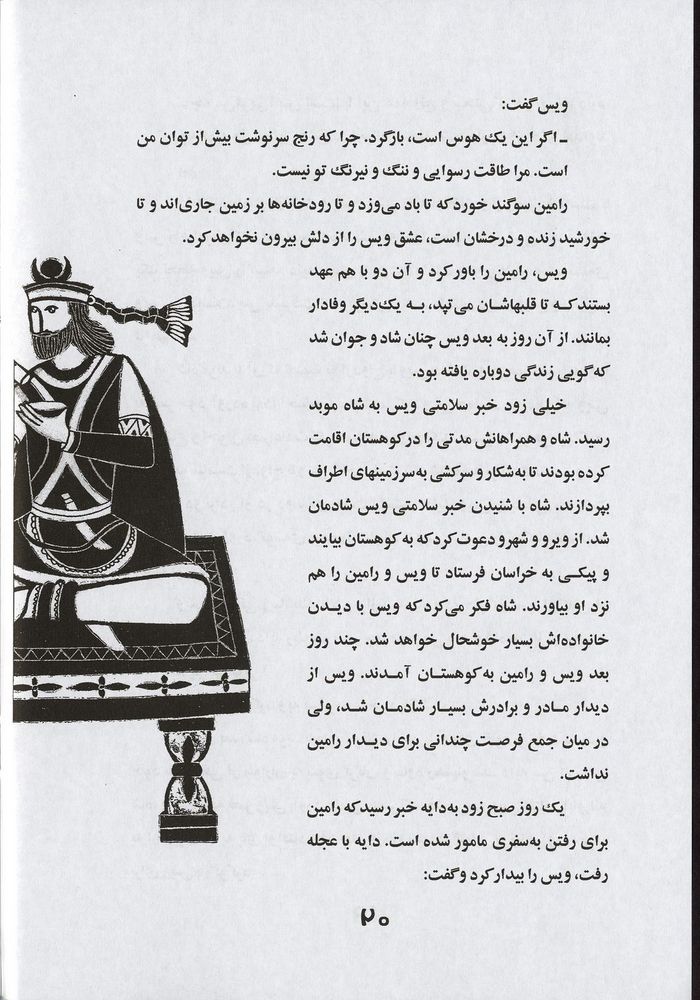 ویس گفت:
ـ اگر این یک هوس است، بازگرد. چرا که رنج سرنوشت بیش از توان من
است. مرا طاقت رسوایی و ننگ و نیرنگ تو نیست.
رامین سوگند خورد که تا باد می‌وزد و تا رودخانه‌ها بر زمین جاری‌اند و تا
خورشید زنده و درخشان است، عشق ویس را از دلش بیرون نخواهد کرد.
ویس، رامین را باور کرد و آن دو با هم عهد
بستند که تا قلبهاشان می‌تپد، به یک‌دیگر وفادار
بمانند. از آن روز به بعد ویس چنان شاد و جوان شد
که گویی زندگی دوباره یافته بود.
خیلی زود خبر سلامتی ویس به شاه موبد
رسید. شاه و همراهانش مدتی را در کوهستان اقامت
کرده بودند تا به شکار و سرکشی به سرزمینهای اطراف
بپردازند. شاه با شنیدن خبر سلامتی ویس شادمان
شد. از ویرو و شهرو دعوت کرد که به کوهستان بیایند
و پیکی به خراسان فرستاد تا ویس و رامین را هم
نزد او بیاورند. شاه فکر می‌کرد که ویس با دیدن
خانواده‌اش بسیار خوشحال خواهد شد. چند روز
بعد ویس و رامین به کوهستان آمدند. ویس از
دیدار مادر و برادرش بسیار شادمان شد، ولی
در میان جمع فرصت چندانی برای دیدار رامین
نداشت.
یک روز صبح زود به دایه خبر رسید که رامین
برای رفتن به سفری مامور شده است. دایه با عجله
رفت، ویس را بیدار کرد و گفت:
۲۰